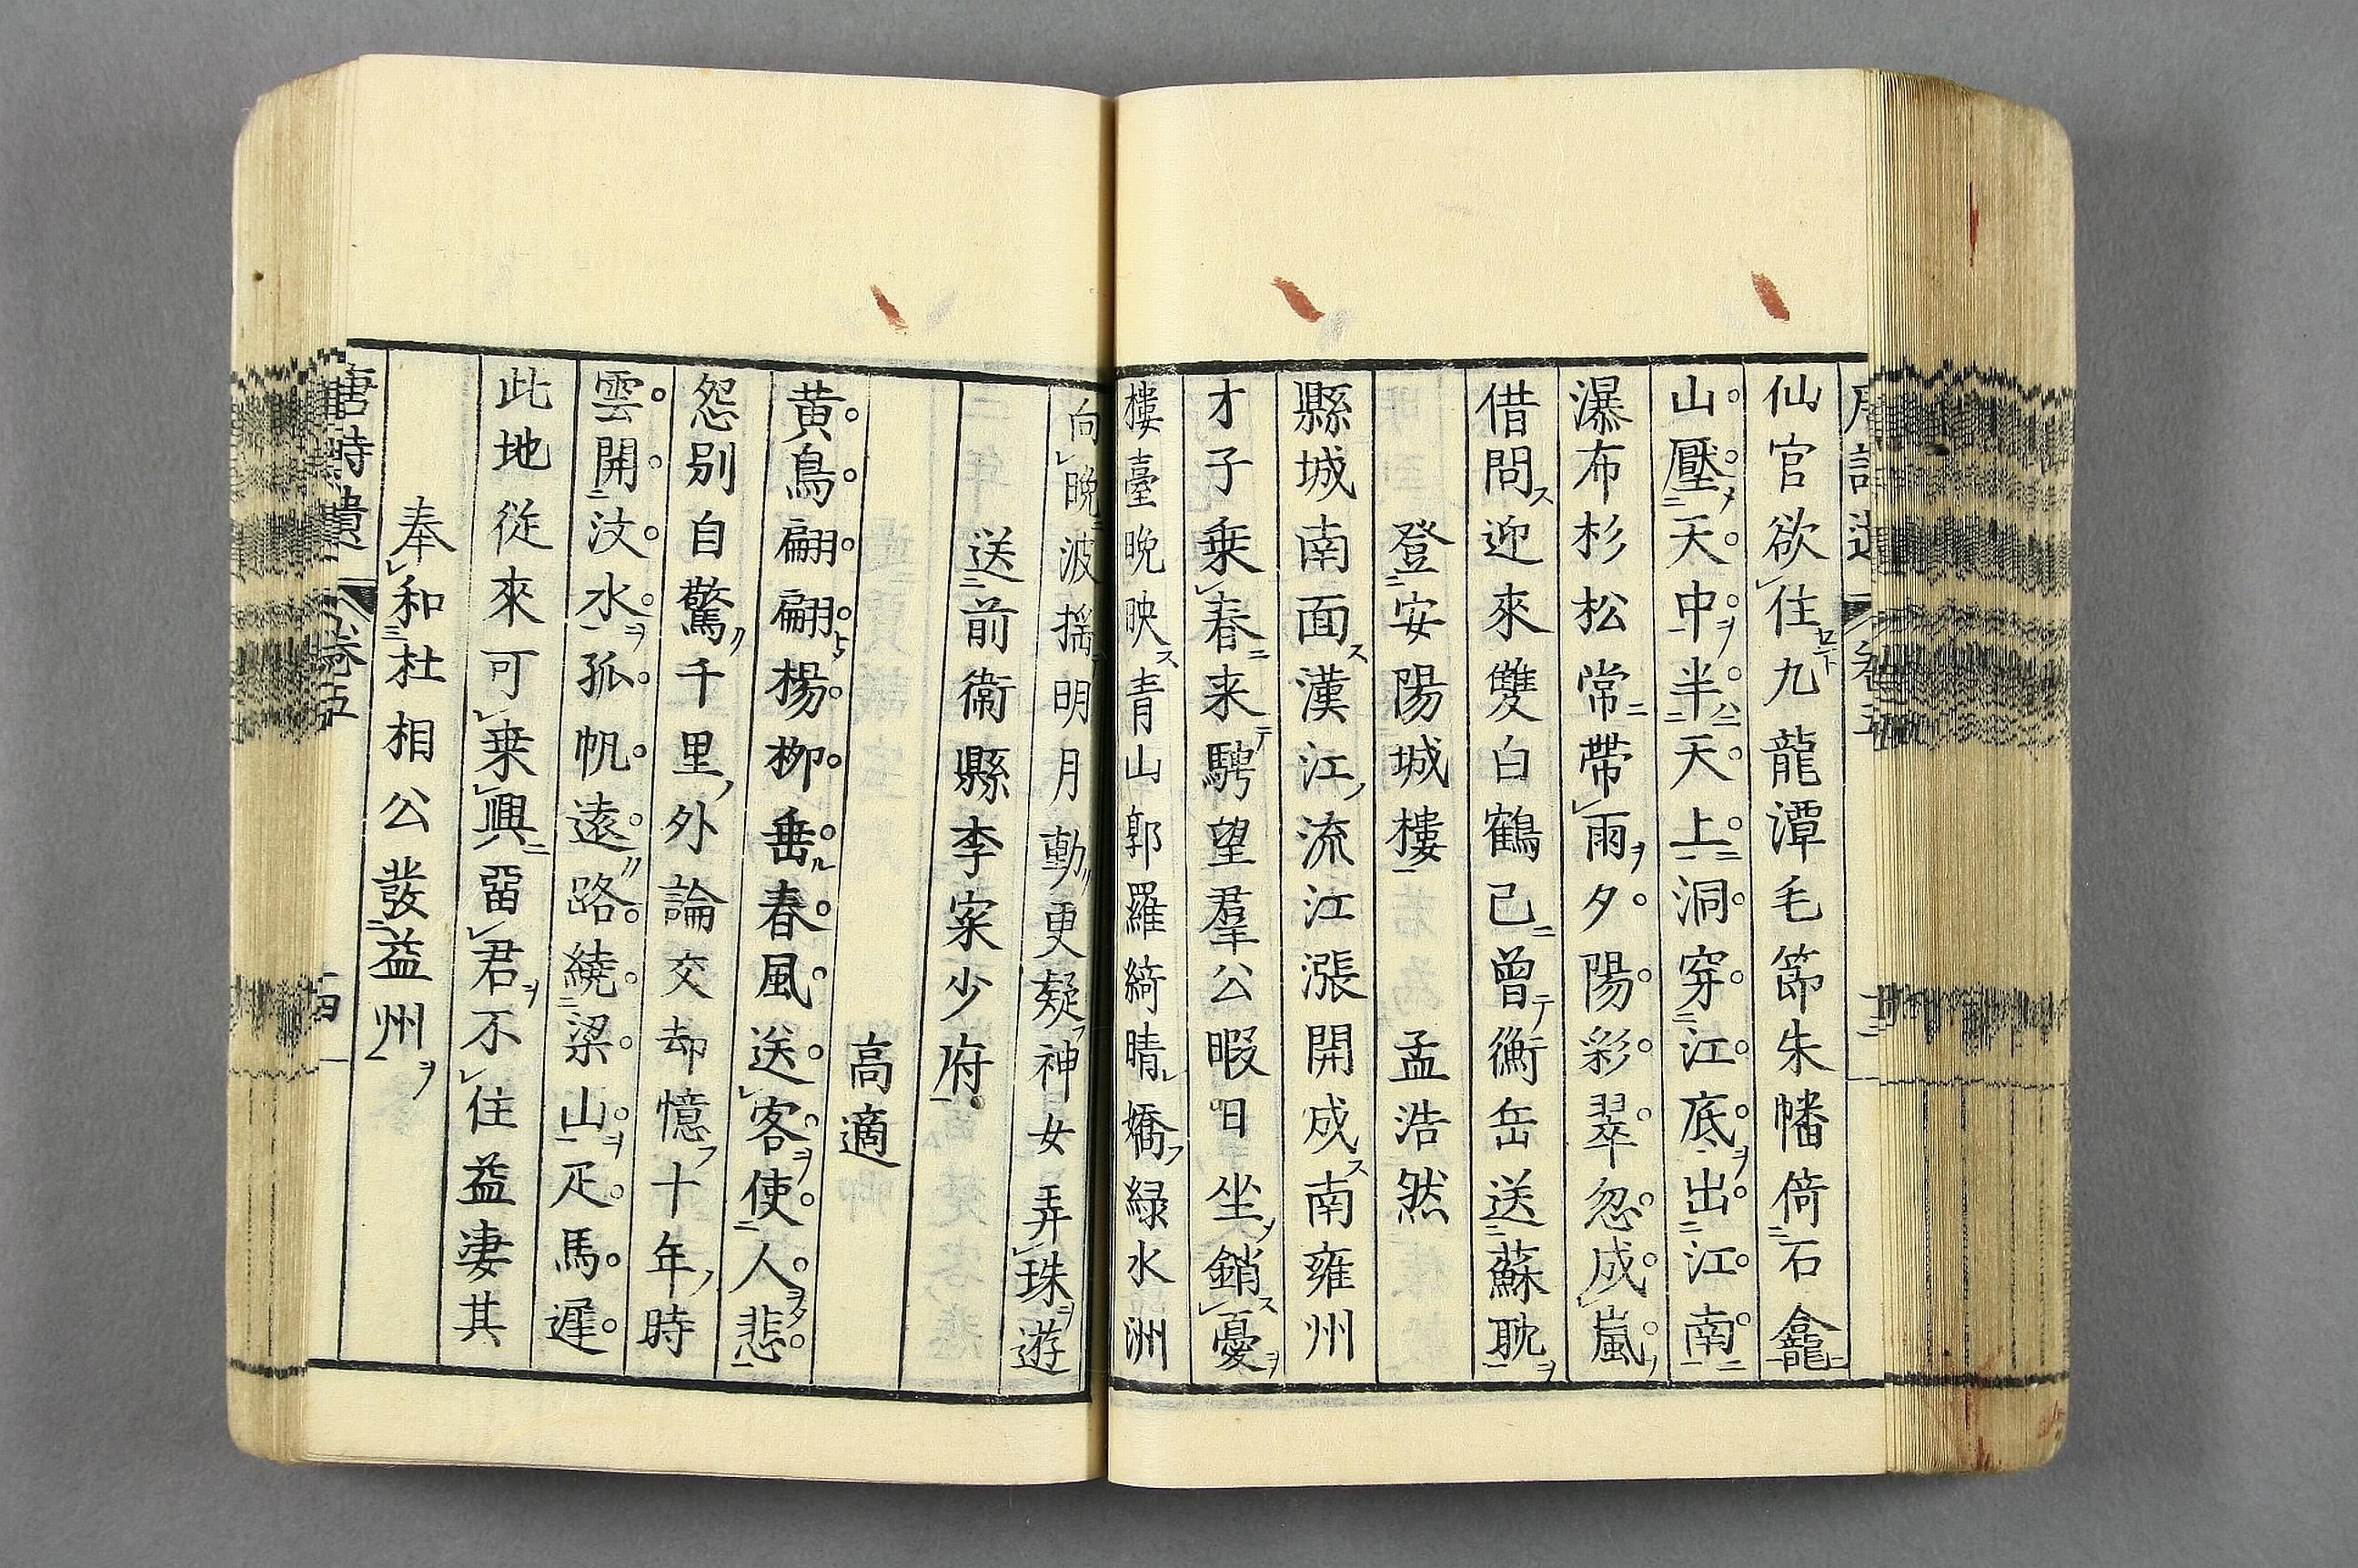 仙官欲住九龍潭毛節朱幡倚石龕
山壓天中半天上洞穿江底出江南
瀑布杉松常帶雨夕陽彩翠忽成嵐
借問迎來雙白鶴已曾衡岳送蘇耽
登安陽城樓孟浩然
縣城南面漢江流江漲開成南雍州
才子乗春来騁望羣公暇日坐銷憂
樓臺晩映青山郭羅綺晴嬌緑水洲
向晩波揺明月動更疑神女弄珠遊
送前衛縣李寀少府
高適
黄鳥翩翩楊柳垂春風送客使人悲
怨别自驚千里外論交却憶十年時
雲開汶水孤帆遠路繞梁山疋馬遲
此地從來可乗興畱君不住益凄其
奉和杜相公發益州